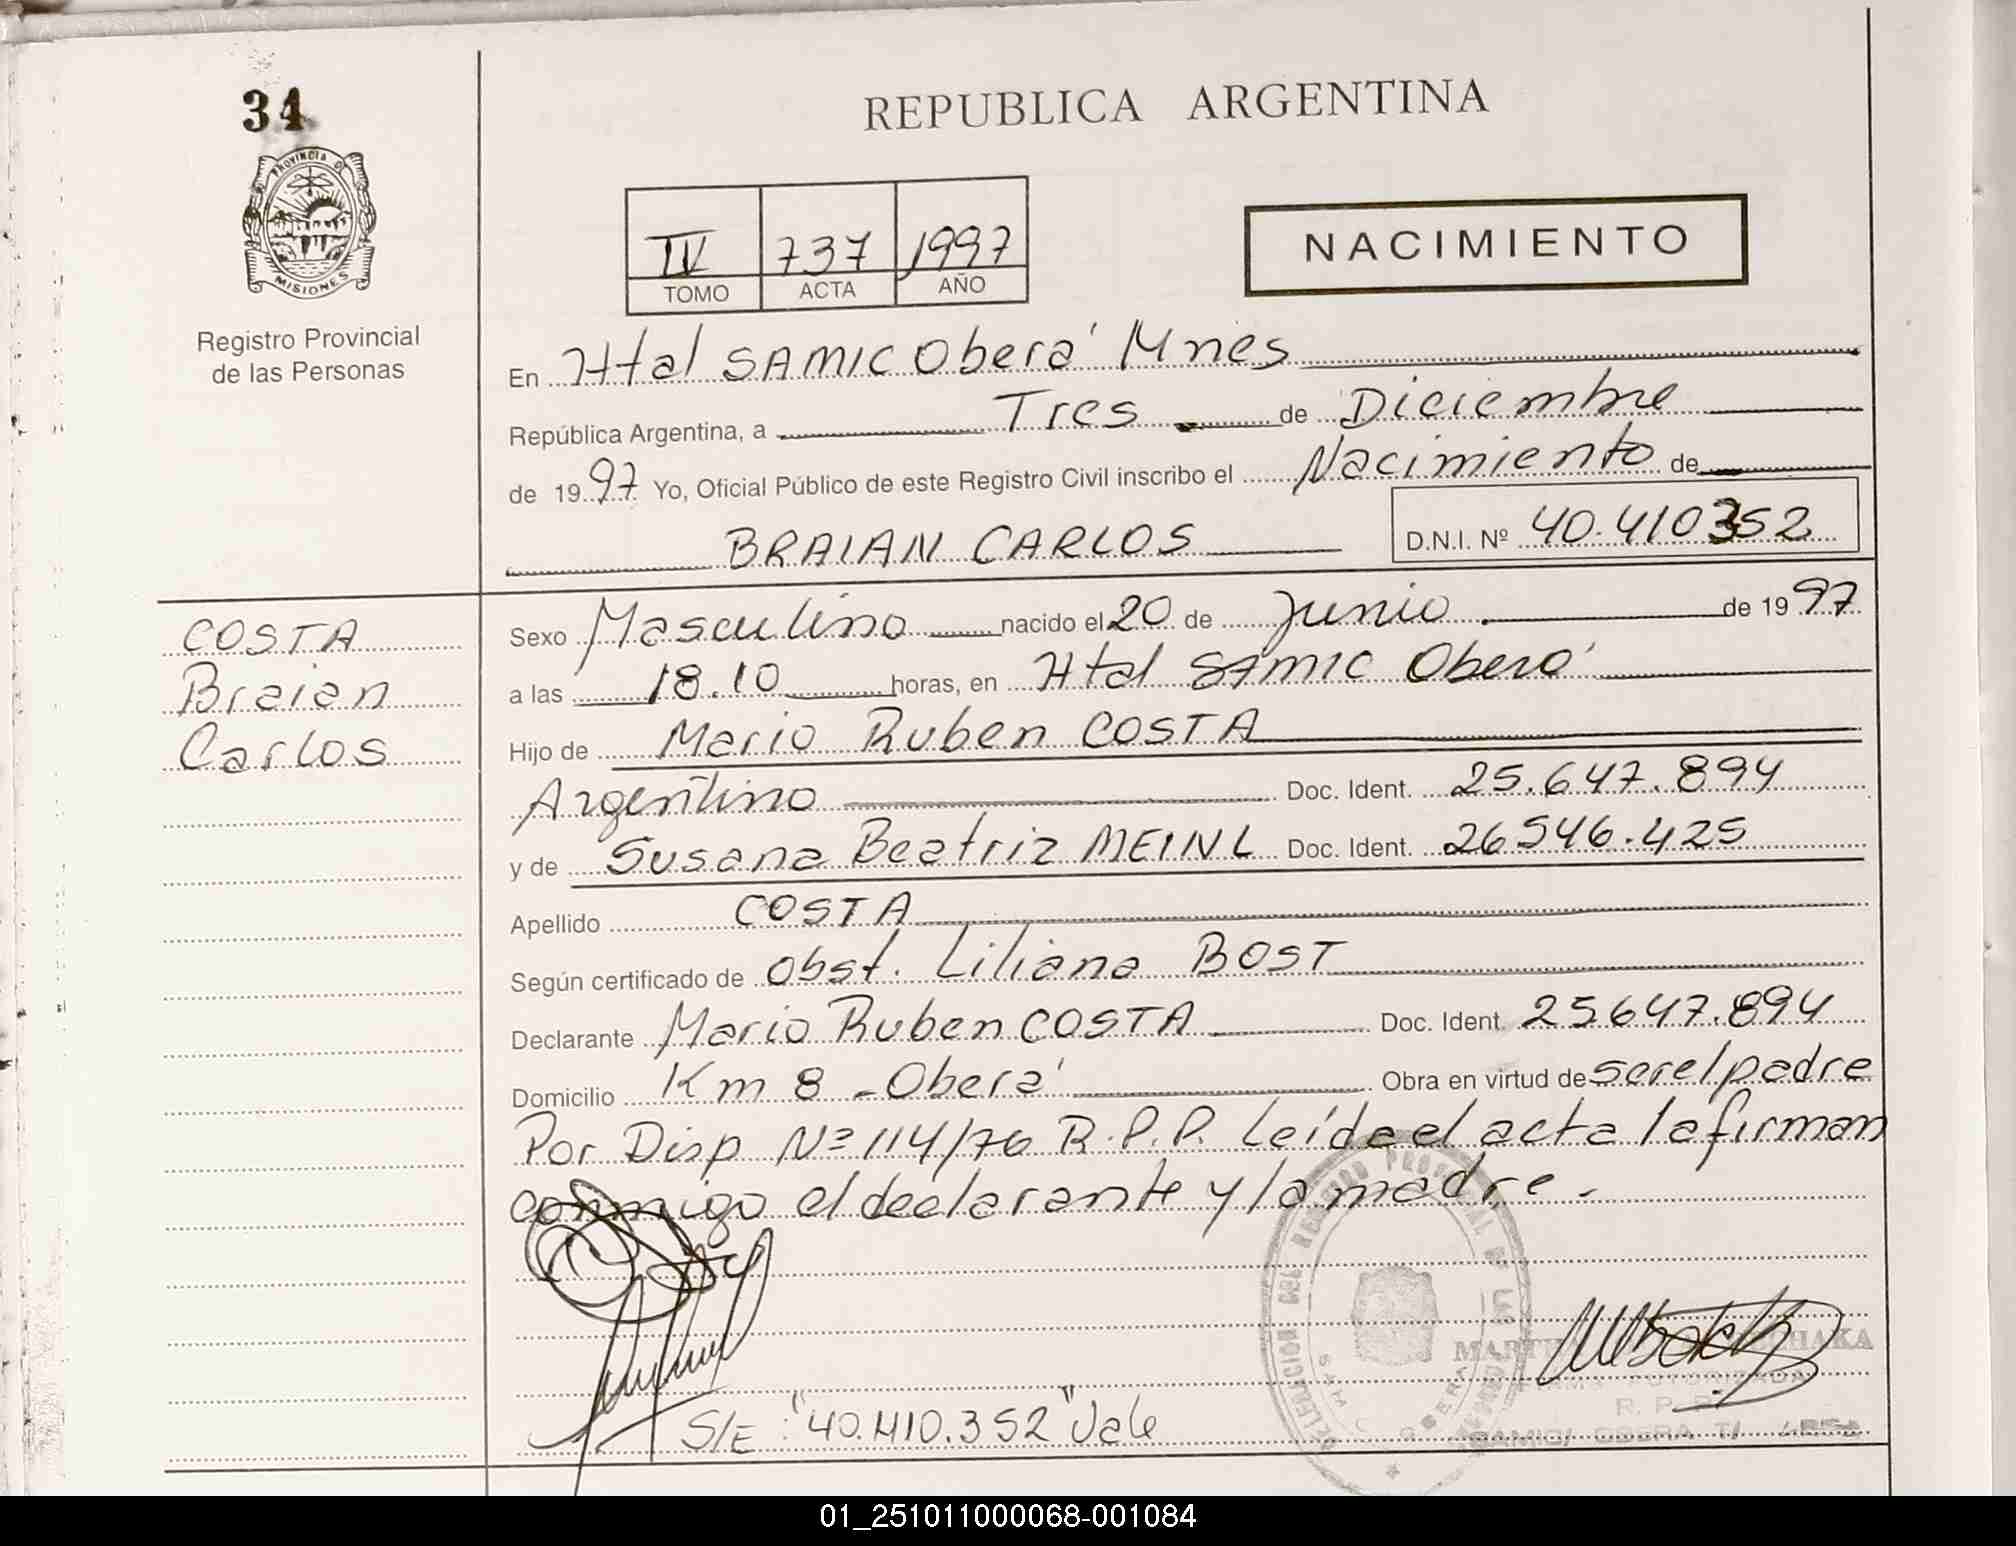 34
PROVINCIA DE
MISIONES
Registro Provincial
de las Personas
REPUBLICA ARGENTINA
IV 737 1997
TOMO ACTA AÑO
NACIMIENTO
En Htal SAMIC Oberá Mnes
República Argentina, a Tres de Diciembre
de 1997 Yo, Oficial Público de este Registro Civil inscribo el Nacimiento de
BRAIAN CARLOS D.N.I. Nº 40.410352
COSTA
Braian
Carlos
Sexo Masculino nacido el 20 de Junio de 1997
a las 18.10 horas, en Htal SAMIC Oberá
Hijo de Mario Ruben COSTA
Argentino Doc. Ident. 25.647.894
y de Susana Beatriz MEINL Doc. Ident. 26546.425
Apellido COSTA
Según certificado de obst. Liliana BOST
Declarante Mario Ruben COSTA Doc. Ident. 25647.894
Domicilio Km 8 - Oberá Obra en virtud de ser el padre
Por Disp Nº 114/76 R.P.P. Leída el acta la firman
conmigo el declarante y la madre.
DELEGACION DEL REGISTRO PROVINCIAL DE LAS
R. P. P.
SAMIC/ OBERA
S/E: "40.410.352" Vale
01_251011000068-001084